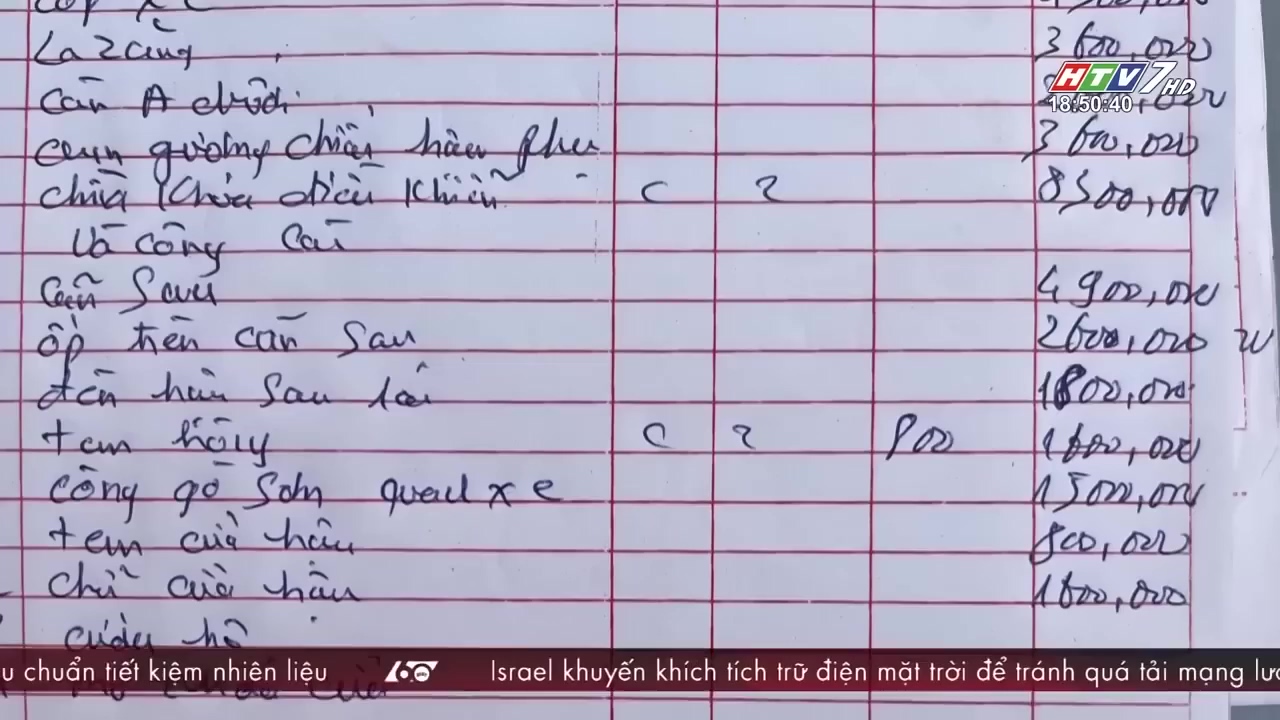 La Zăng 3 600,000
HTV7 HD
Cản A dưới ,000
18:50:40
cụm gương chiếu hậu phụ 3 600,000
chìa khóa điều khiển C 2 8500,000
và công cài
cản sau 4 900,000
ốp trên cản sau 2600,000
đèn hậu sau lái 1800,000
tem hông C 2 800 1600,000
công gò sơn quanh xe 15000,000
tem cửa hậu 800,000
chữ cửa hậu 1600,000
cứu hộ
u chuẩn tiết kiệm nhiên liệu 60 giây Israel khuyến khích tích trữ điện mặt trời để tránh quá tải mạng lưới